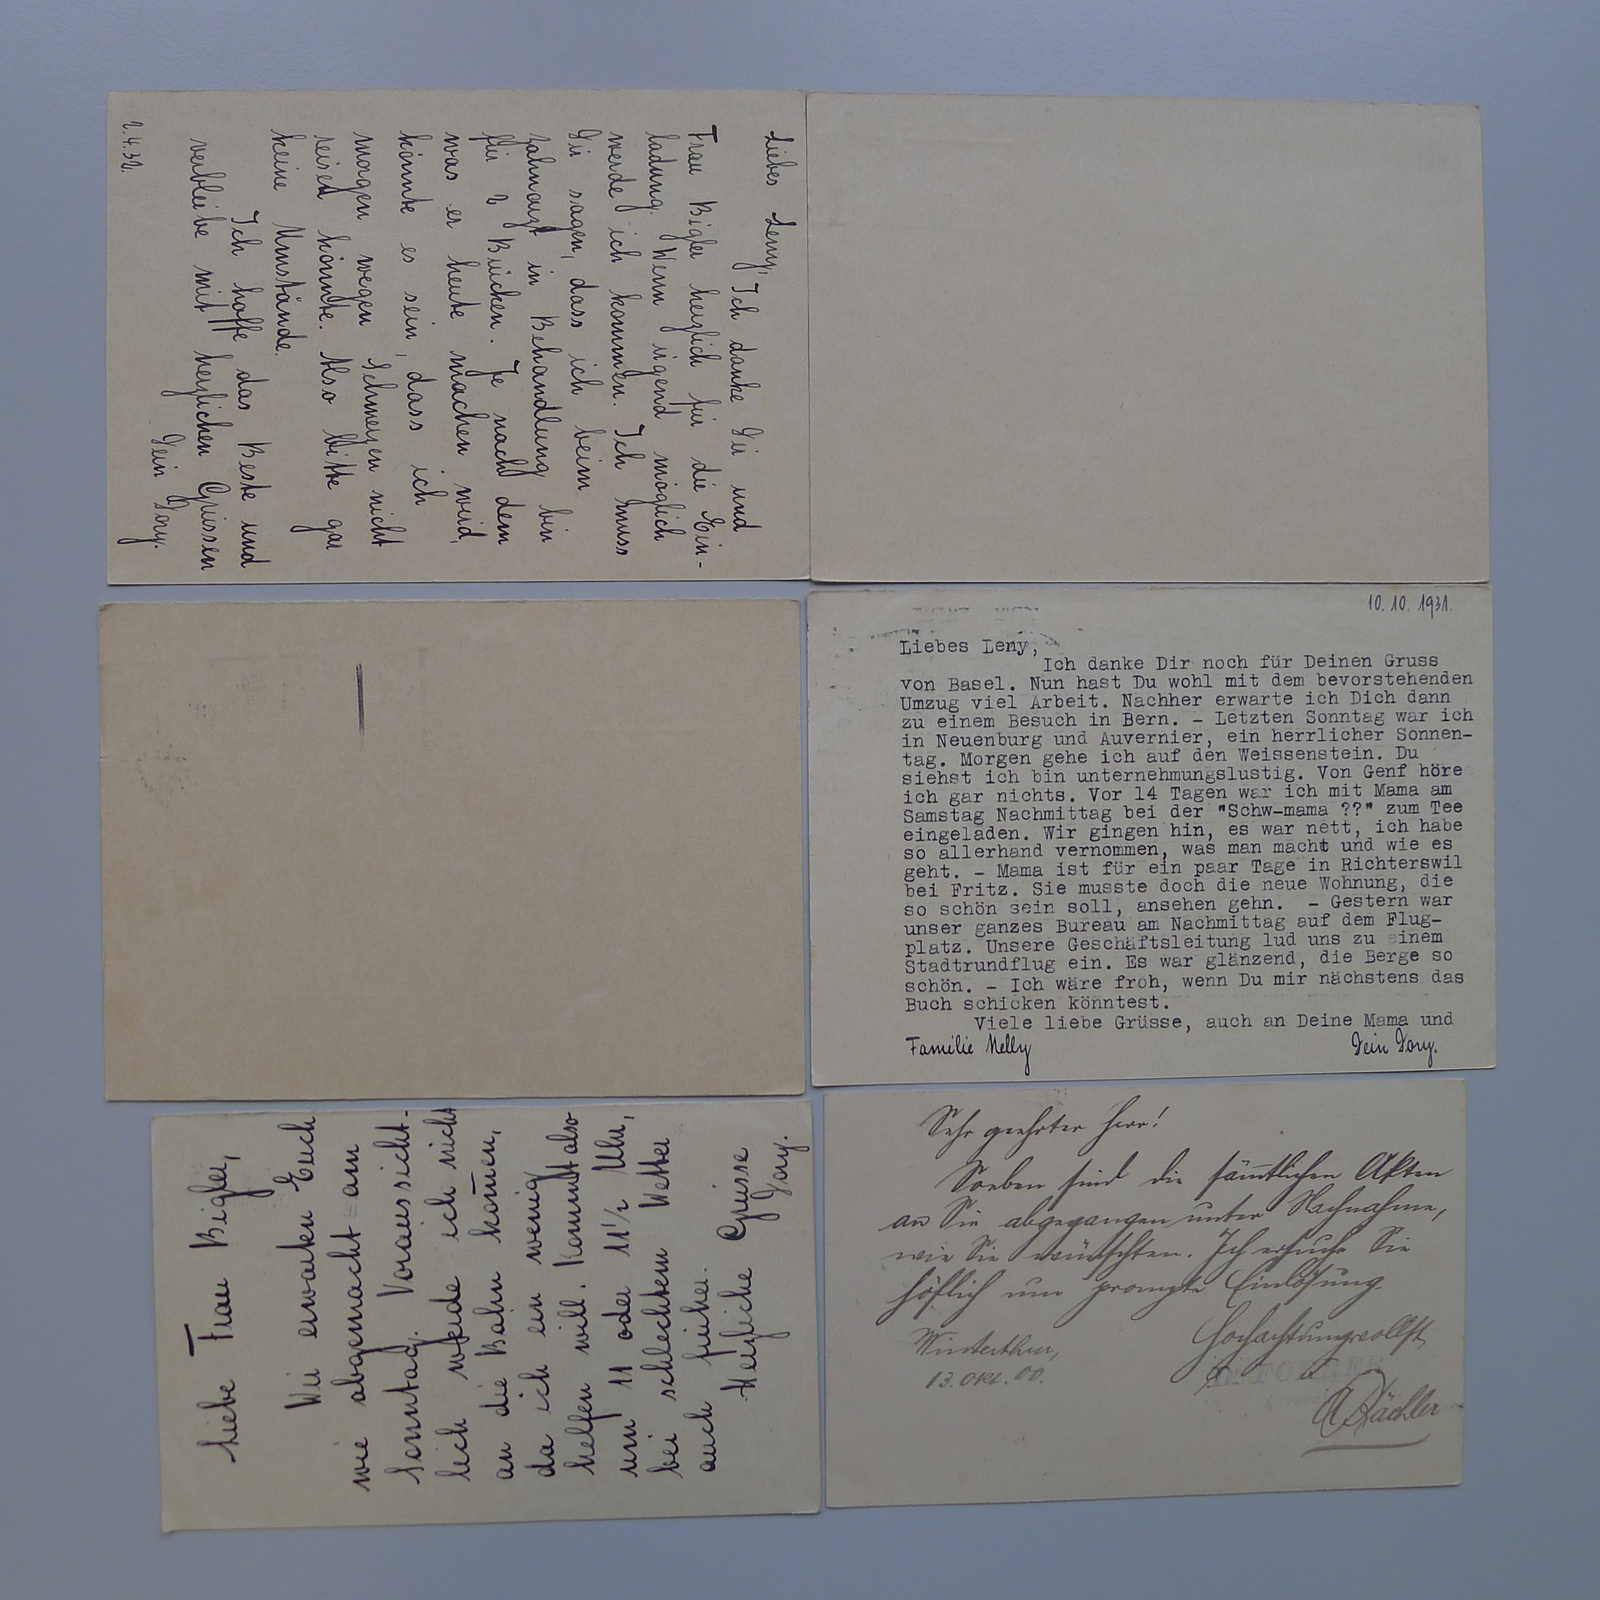 Liebes Leny,
Ich danke Dir und
Frau Bigler herzlich für die Ein-
ladung. Wenn irgend möglich
werde ich kommen. Ich muss
Dir sagen, dass ich beim
Zahnarzt in Behandlung bin
für 2 Brücken. Je nach dem
was er heute machen wird,
könnte es sein, dass ich
morgen wegen Schmerzen nicht
reisen könnte. Also bitte gar
keine Umstände.
Ich hoffe das Beste und
verbleibe mit herzlichen Grüssen
Dein Dory.
2.4.32.
10.10.1931.
Liebes Leny,
Ich danke Dir noch für Deinen Gruss
von Basel. Nun hast Du wohl mit dem bevorstehenden
Umzug viel Arbeit. Nachher erwarte ich Dich dann
zu einem Besuch in Bern. - Letzten Sonntag war ich
in Neuenburg und Auvernier, ein herrlicher Sonnen-
tag. Morgen gehe ich auf den Weissenstein. Du
siehst ich bin unternehmungslustig. Von Genf höre
ich gar nichts. Vor 14 Tagen war ich mit Mama am
Samstag Nachmittag bei der "Schw-mama ??" zum Tee
eingeladen. Wir gingen hin, es war nett, ich habe
so allerhand vernommen, was man macht und wie es
geht. - Mama ist für ein paar Tage in Richterswil
bei Fritz. Sie musste doch die neue Wohnung, die
so schön sein soll, ansehen gehn. - Gestern war
unser ganzes Bureau am Nachmittag auf dem Flug-
platz. Unsere Geschäftsleitung lud uns zu einem
Stadtrundflug ein. Es war glänzend, die Berge so
schön. - Ich wäre froh, wenn Du mir nächstens das
Buch schicken könntest.
Viele liebe Grüsse, auch an Deine Mama und
Familie Nelly Dein Dory.
Liebe Frau Bigler,
Wir erwarten Euch
wie abgemacht am
Sonntag. Voraussicht-
lich werde ich nicht
an die Bahn kommen,
da ich ein wenig
helfen will. Kommt also
um 11 oder 11 1/2 Uhr,
bei schlechtem Wetter
auch früher.
Herzliche Grüsse
Dory.
Sehr geehrter Herr!
Soeben sind die sämtlichen Akten
an Sie abgegangen unter Nachnahme,
wie Sie wünschten. Ich ersuche Sie
höflich um prompte Einlösung.
Hochachtungsvollst
Winterthur,
13. Okt. 00.
A Bächler